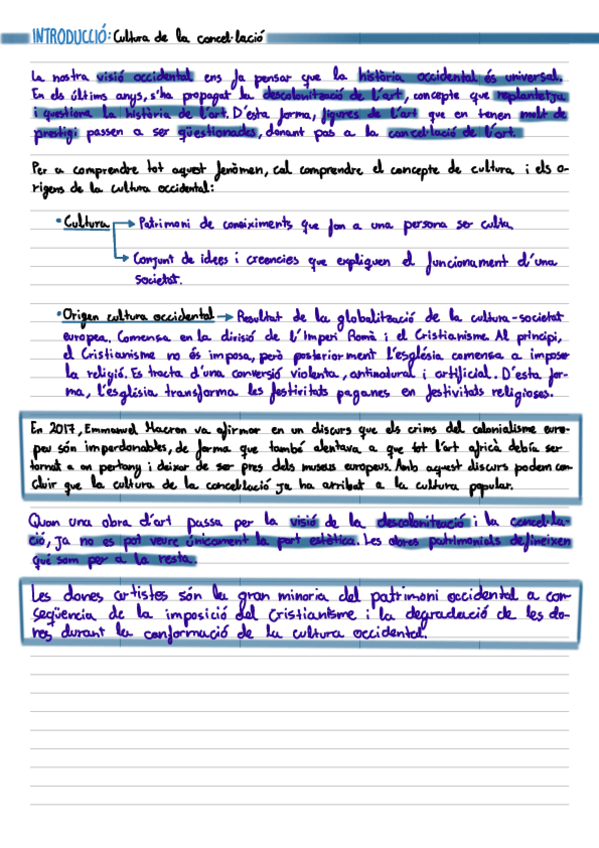 INTRODUCCIÓ: Cultura de la cancel·lació
La nostra visió occidental ens fa pensar que la història occidental és universal.
En els últims anys, s'ha propagat la descolonització de l'art, concepte que replanteja
i questiona la història de l'art. D'esta forma, figures de l'art que en tenen molt de
prestigi passen a ser qüestionades, donant pas a la cancel·lació de l'art.
Per a comprendre tot aquest fenòmen, cal comprendre el concepte de cultura i els o-
rigens de la cultura occidental:
• Cultura → Patrimoni de coneiximents que fan a una persona ser culta
→ Conjunt de idees i creencies que expliquen el funcionament d'una
societat.
• Origen cultura occidental → Resultat de la globalització de la cultura-societat
europea. Comensa en la divisió de l'Imperi Romà i el Cristianisme. Al principi,
el Cristianisme no és imposa, però posteriorment l'església comensa a imposar
la religió. Es tracta d'una conversió violenta, antinatural i artificial. D'esta for-
ma, l'església transforma les festivitats paganes en festivitats religioses.
En 2017, Emmanuel Macron va afirmar en un discurs que els crims del colonialisme euro-
peu són imperdonables, de forma que també alentava a que tot l'art africà debía ser
tornat a on pertany i deixar de ser pres dels museus europeus. Amb aquest discurs podem con-
cluir que la cultura de la cancel·lació ja ha arribat a la cultura popular.
Quan una obra d'art passa per la visió de la descolonització i la cancel·la-
ció, ja no es pot veure únicament la part estètica. Les obres patrimonials defineixen
què som per a la resta.
Les dones artistes són la gran minoria del patrimoni occidental a con-
seqüència de la imposició del Cristianisme i la degradació de les do-
nes durant la conformació de la cultura occidental.